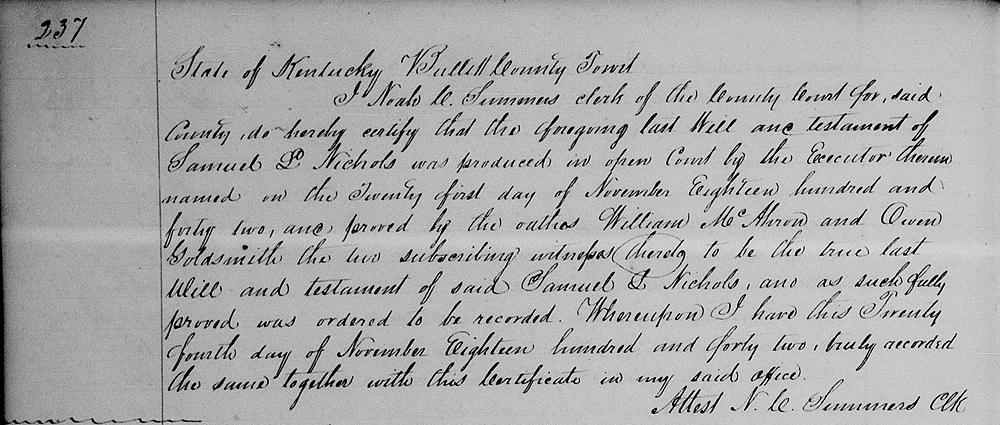 237
State of Kentucky Bullitt County Towit
I Noah C. Summers clerk of the County Court for, said
County, do hereby certify that the foregoing last Will and testament of
Samuel P Nichols was produced in open Court by the Executor therein
named on the Twenty first day of November Eighteen hundred and
forty two, and proved by the oathes William McAhron and Owen
Goldsmith the two subscribing witnesses thereto to be the true last
Will and testament of said Samuel P Nichols, and as such fully
proved was ordered to be recorded. Whereupon I have this Twenty
fourth day of November Eighteen hundred and forty two, truly recorded
the same together with this Certificate in my said office.
Attest N. C. Summers Clk